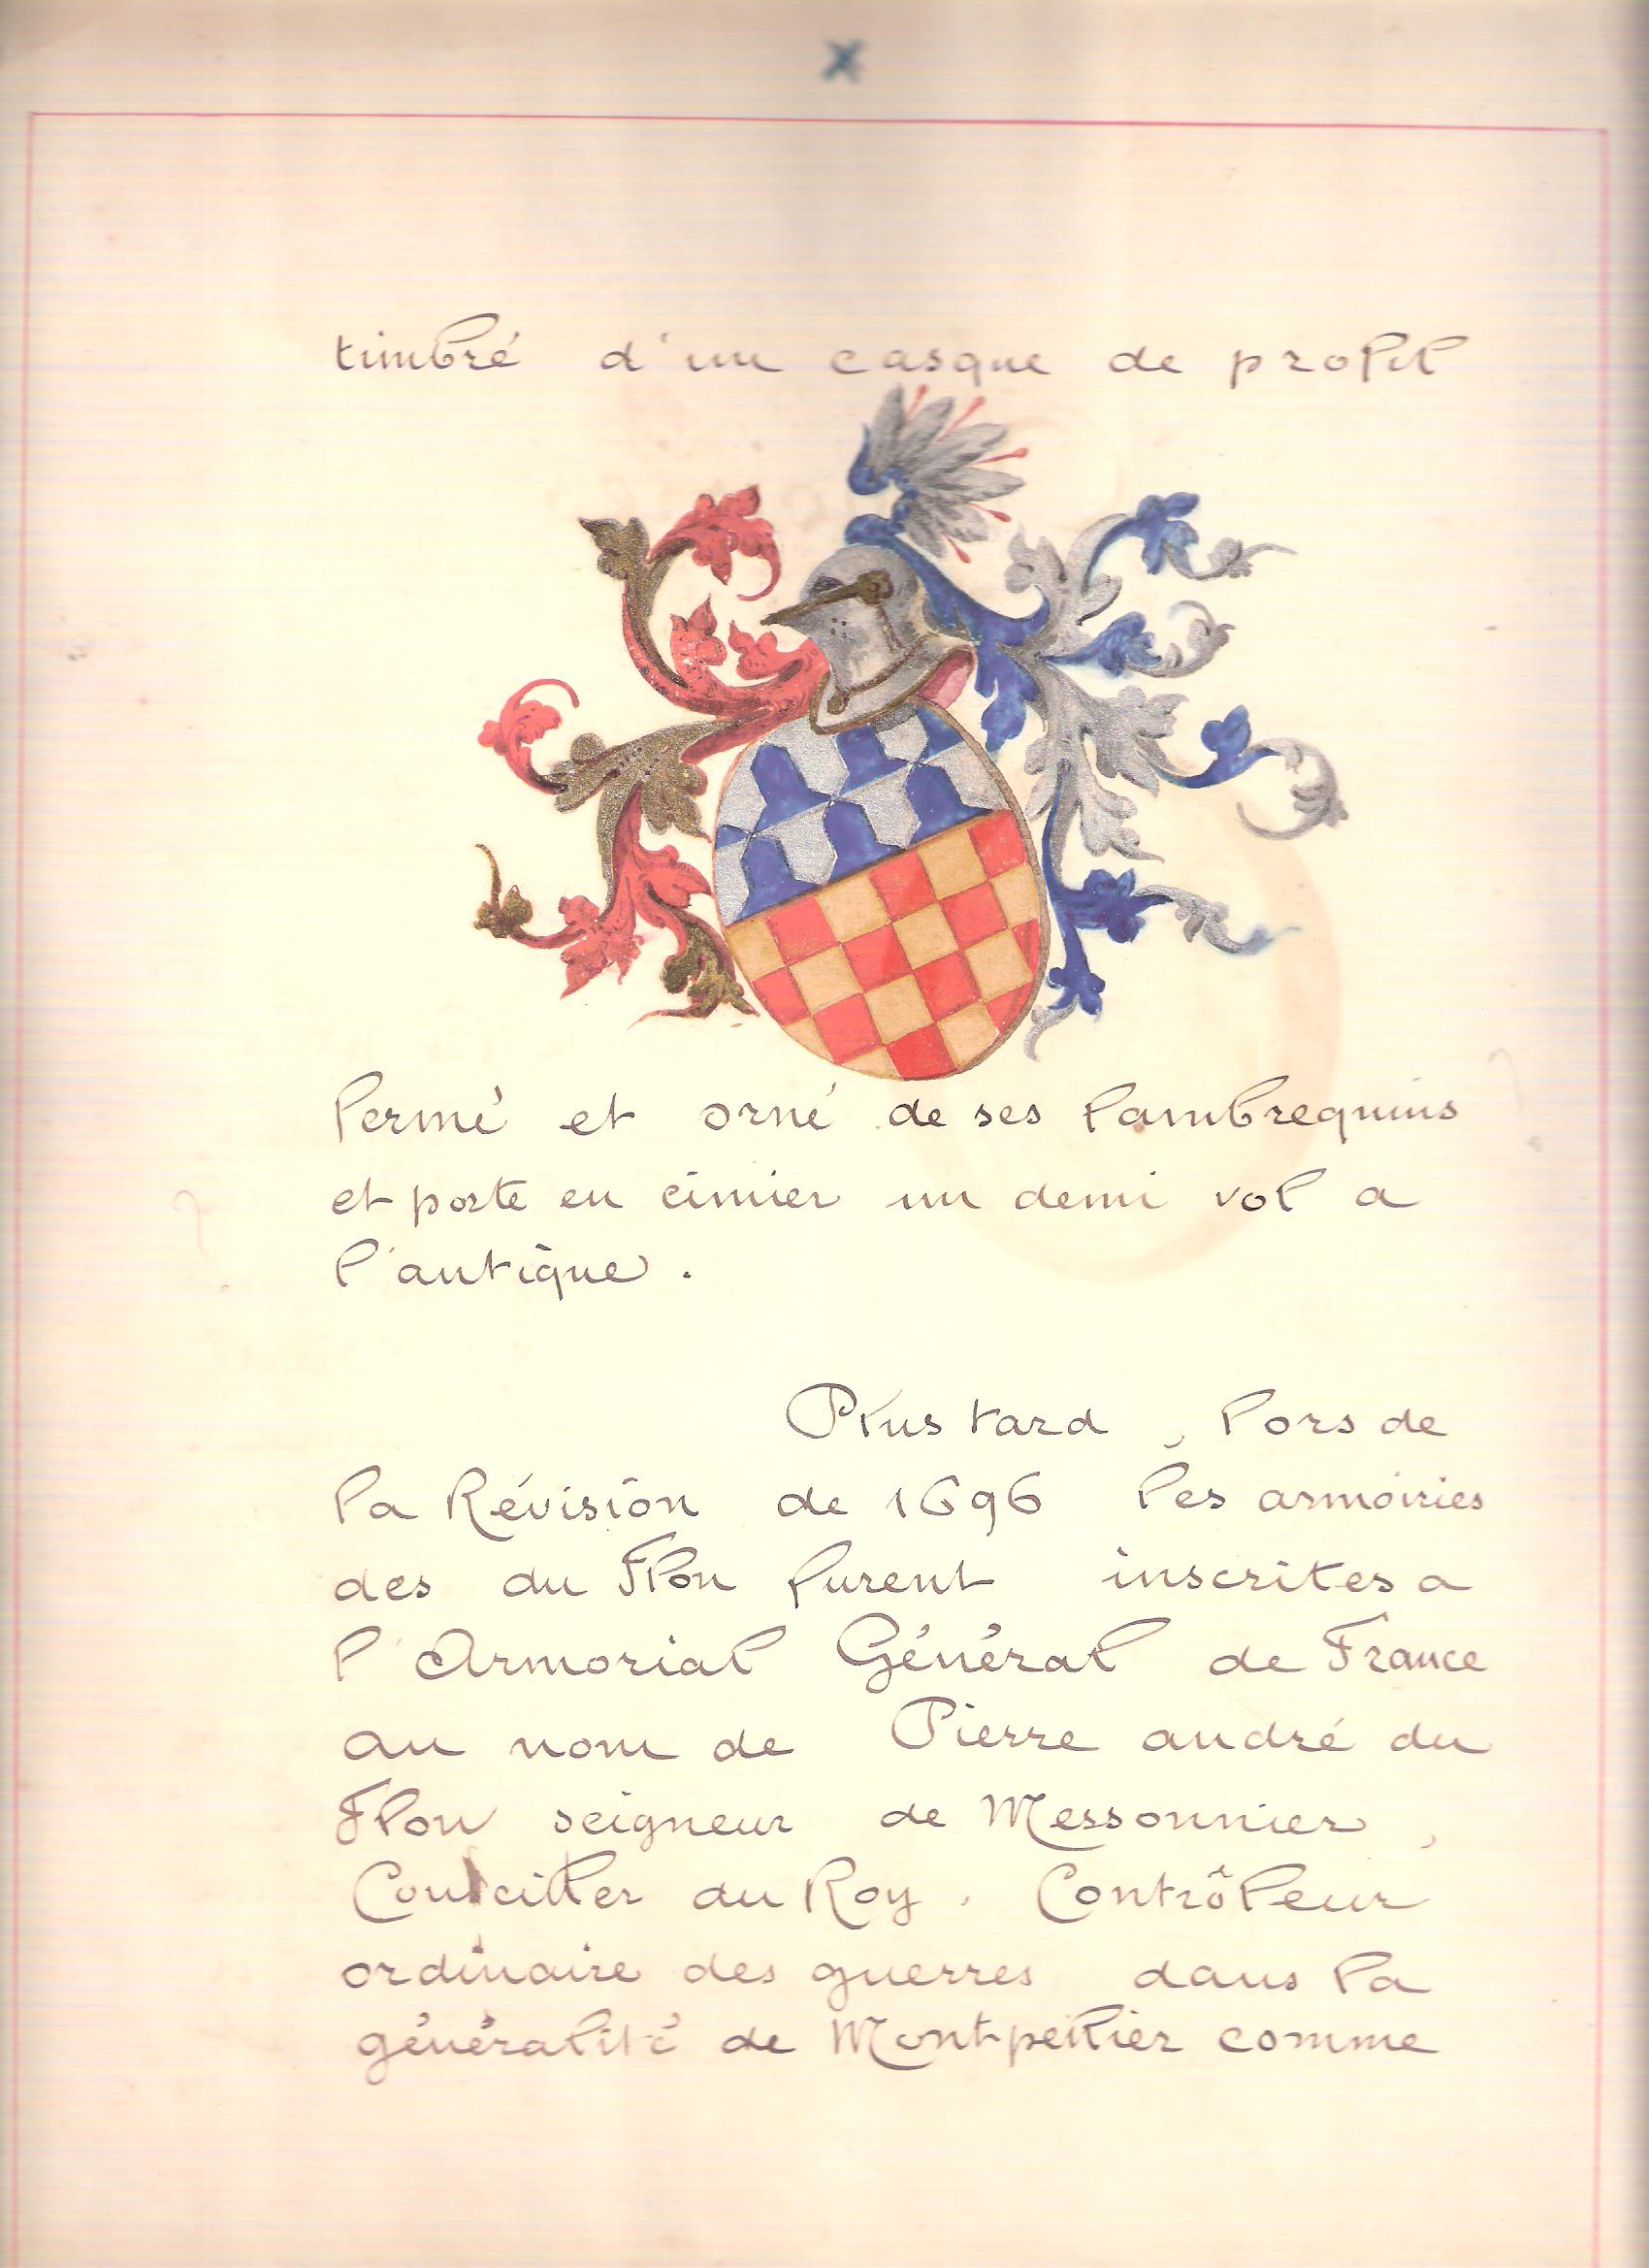 timbré d'un casque de profil
fermé et orné de ses lambrequins
et porte en cimier un demi vol a
l'antique.
Plus tard, lors de
la Révision de 1696 les armoiries
des du Flon furent inscrites a
l'Armorial Général de France
au nom de Pierre andré du
Flon seigneur de Messonnier,
Conseiller du Roy. Contrôleur
ordinaire des guerres dans la
généralité de Montpellier comme